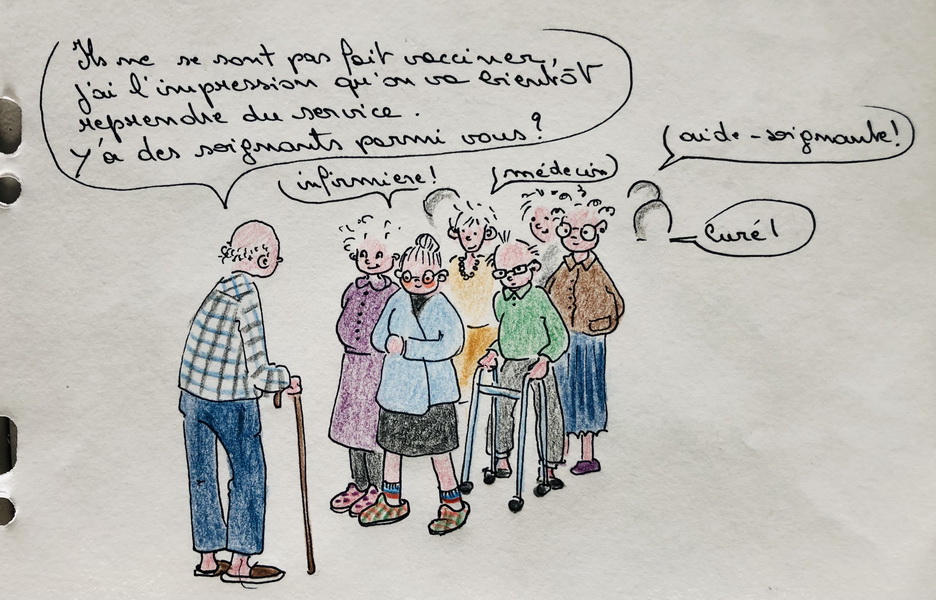 Ils ne se sont pas fait vacciner,
j'ai l'impression qu'on va bientôt
reprendre du service.
y'a des soignants parmi vous?
infirmiere!
médecin
aide-soignante!
Curé!